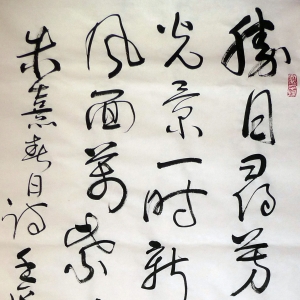 勝日尋芳
光景一時新
風面萬紫
朱熹春日詩